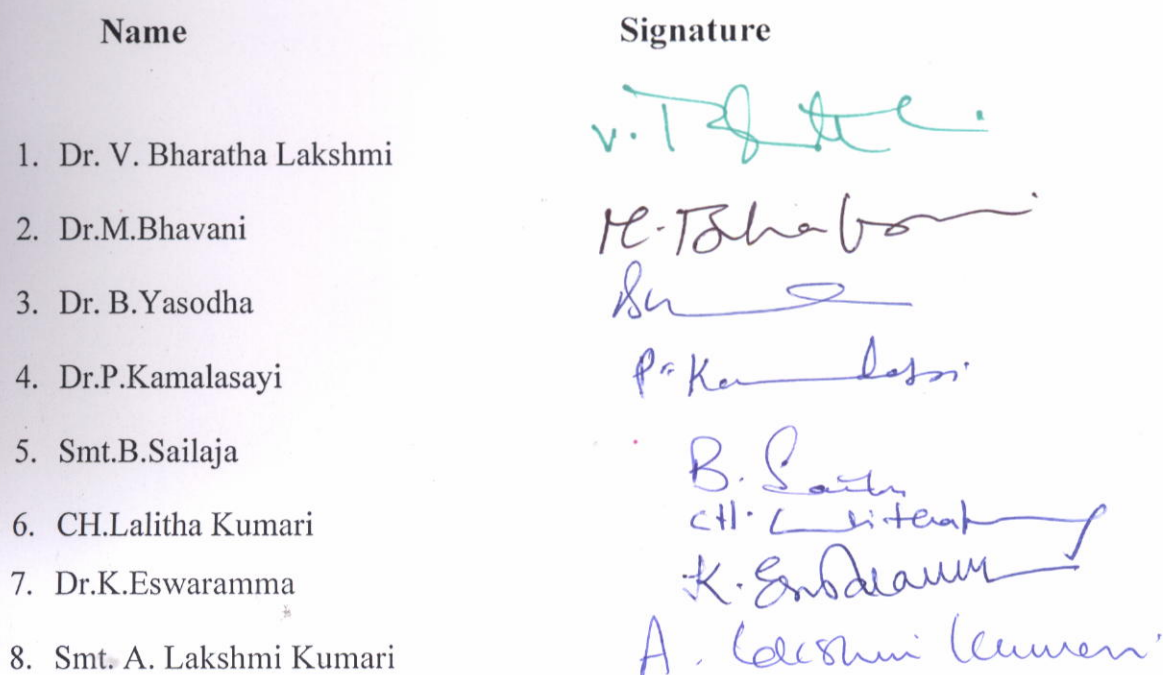 Name Signature
1. Dr. V. Bharatha Lakshmi V.
2. Dr.M.Bhavani M. Bhavani
3. Dr. B.Yasodha
4. Dr.P.Kamalasayi P. Ka
5. Smt.B.Sailaja B.
6. CH.Lalitha Kumari CH.
7. Dr.K.Eswaramma K.
8. Smt. A. Lakshmi Kumari A. Lakshmi Kumari